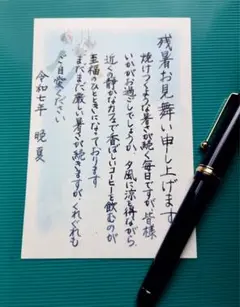 残暑お見舞い申し上げます
焼けつような暑さが続く毎日ですが 皆様
いかがお過ごしでしょうか 夕風に涼を得ながら
近くの静かなカフェで香ばしいコーヒーを飲むのが
至福のひとときになっております
まだまだ厳しい暑さが続きますが くれぐれも
ご自愛ください
令和七年 晩夏